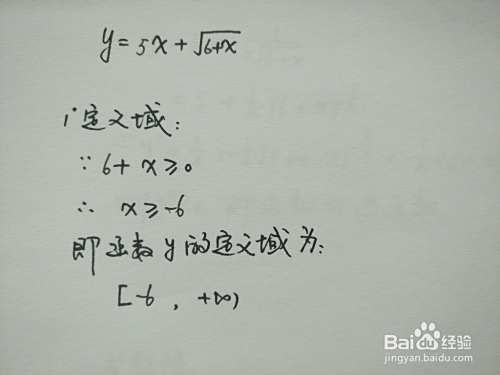 y=5x+√(6+x)
i 定义域:
∵ 6+x≥0
∴ x≥-6
即函数y的定义域为:
[-6, +∞)
Baidu经验
jingyan.baidu.com